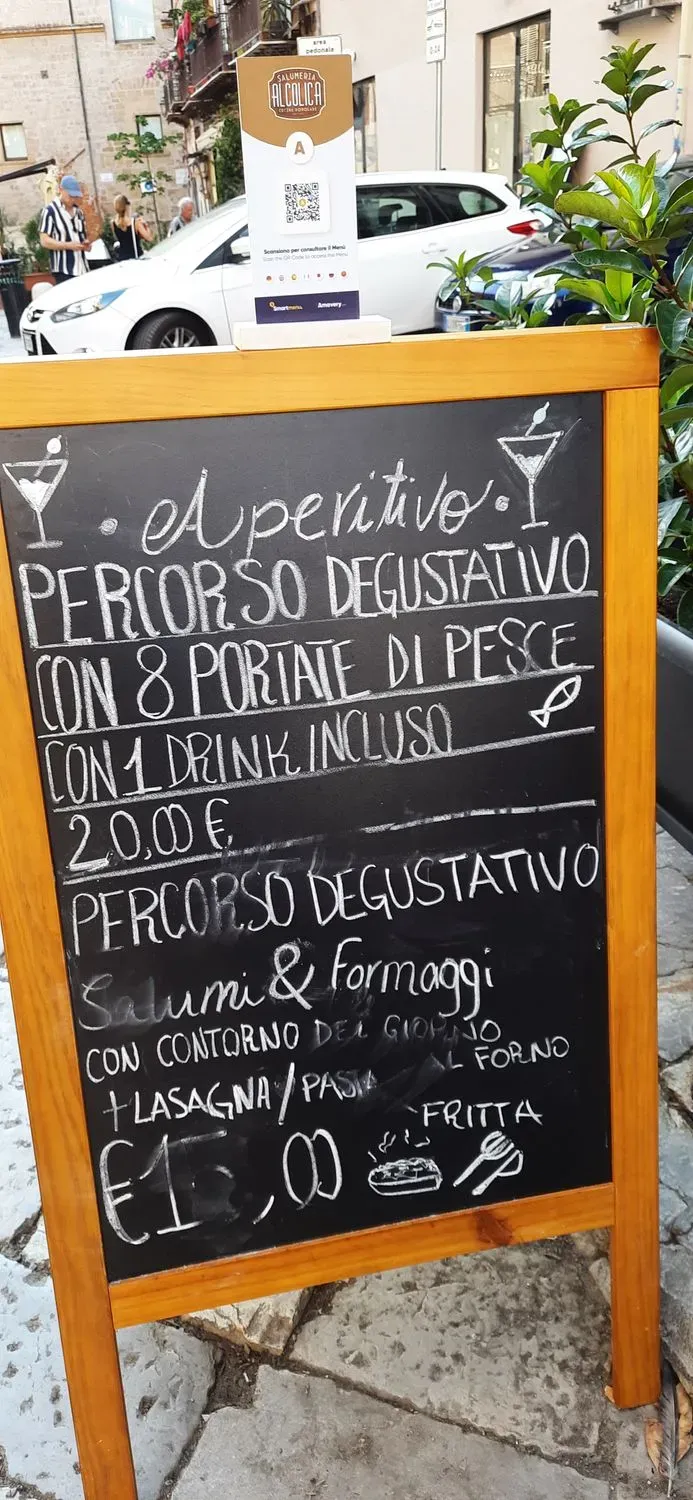 area
pedonale
0-24
SALUMERIA
ALCOLICA
CUCINA POPOLARE
A
Scansiona per consultare il Menù
Scan the QR Code to access the Menu
Smartmenu
Amavery
Aperitivo
PERCORSO DEGUSTATIVO
CON 8 PORTATE DI PESCE
CON 1 DRINK INCLUSO
20,00 €
PERCORSO DEGUSTATIVO
Salumi & Formaggi
CON CONTORNO DEL GIORNO
+ LASAGNA/PASTA AL FORNO
FRITTA
€15,00